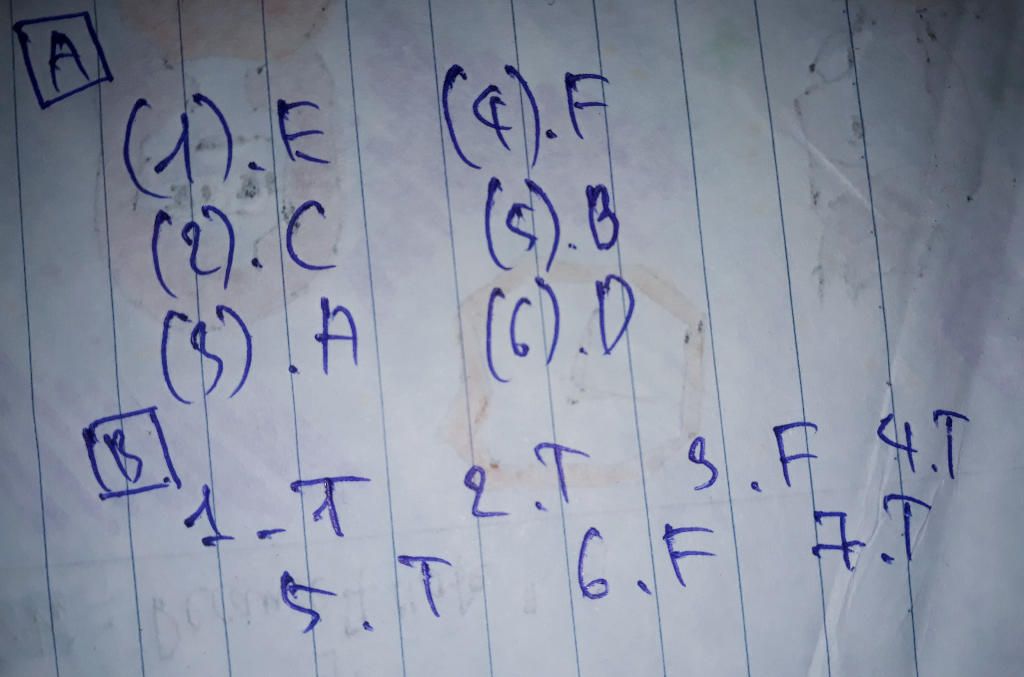 A
(1). E (4). F
(2). C (5). B
(3). A (6). D
B
1 - T 2. T 3. F 4. T
5. T 6. F 7. T